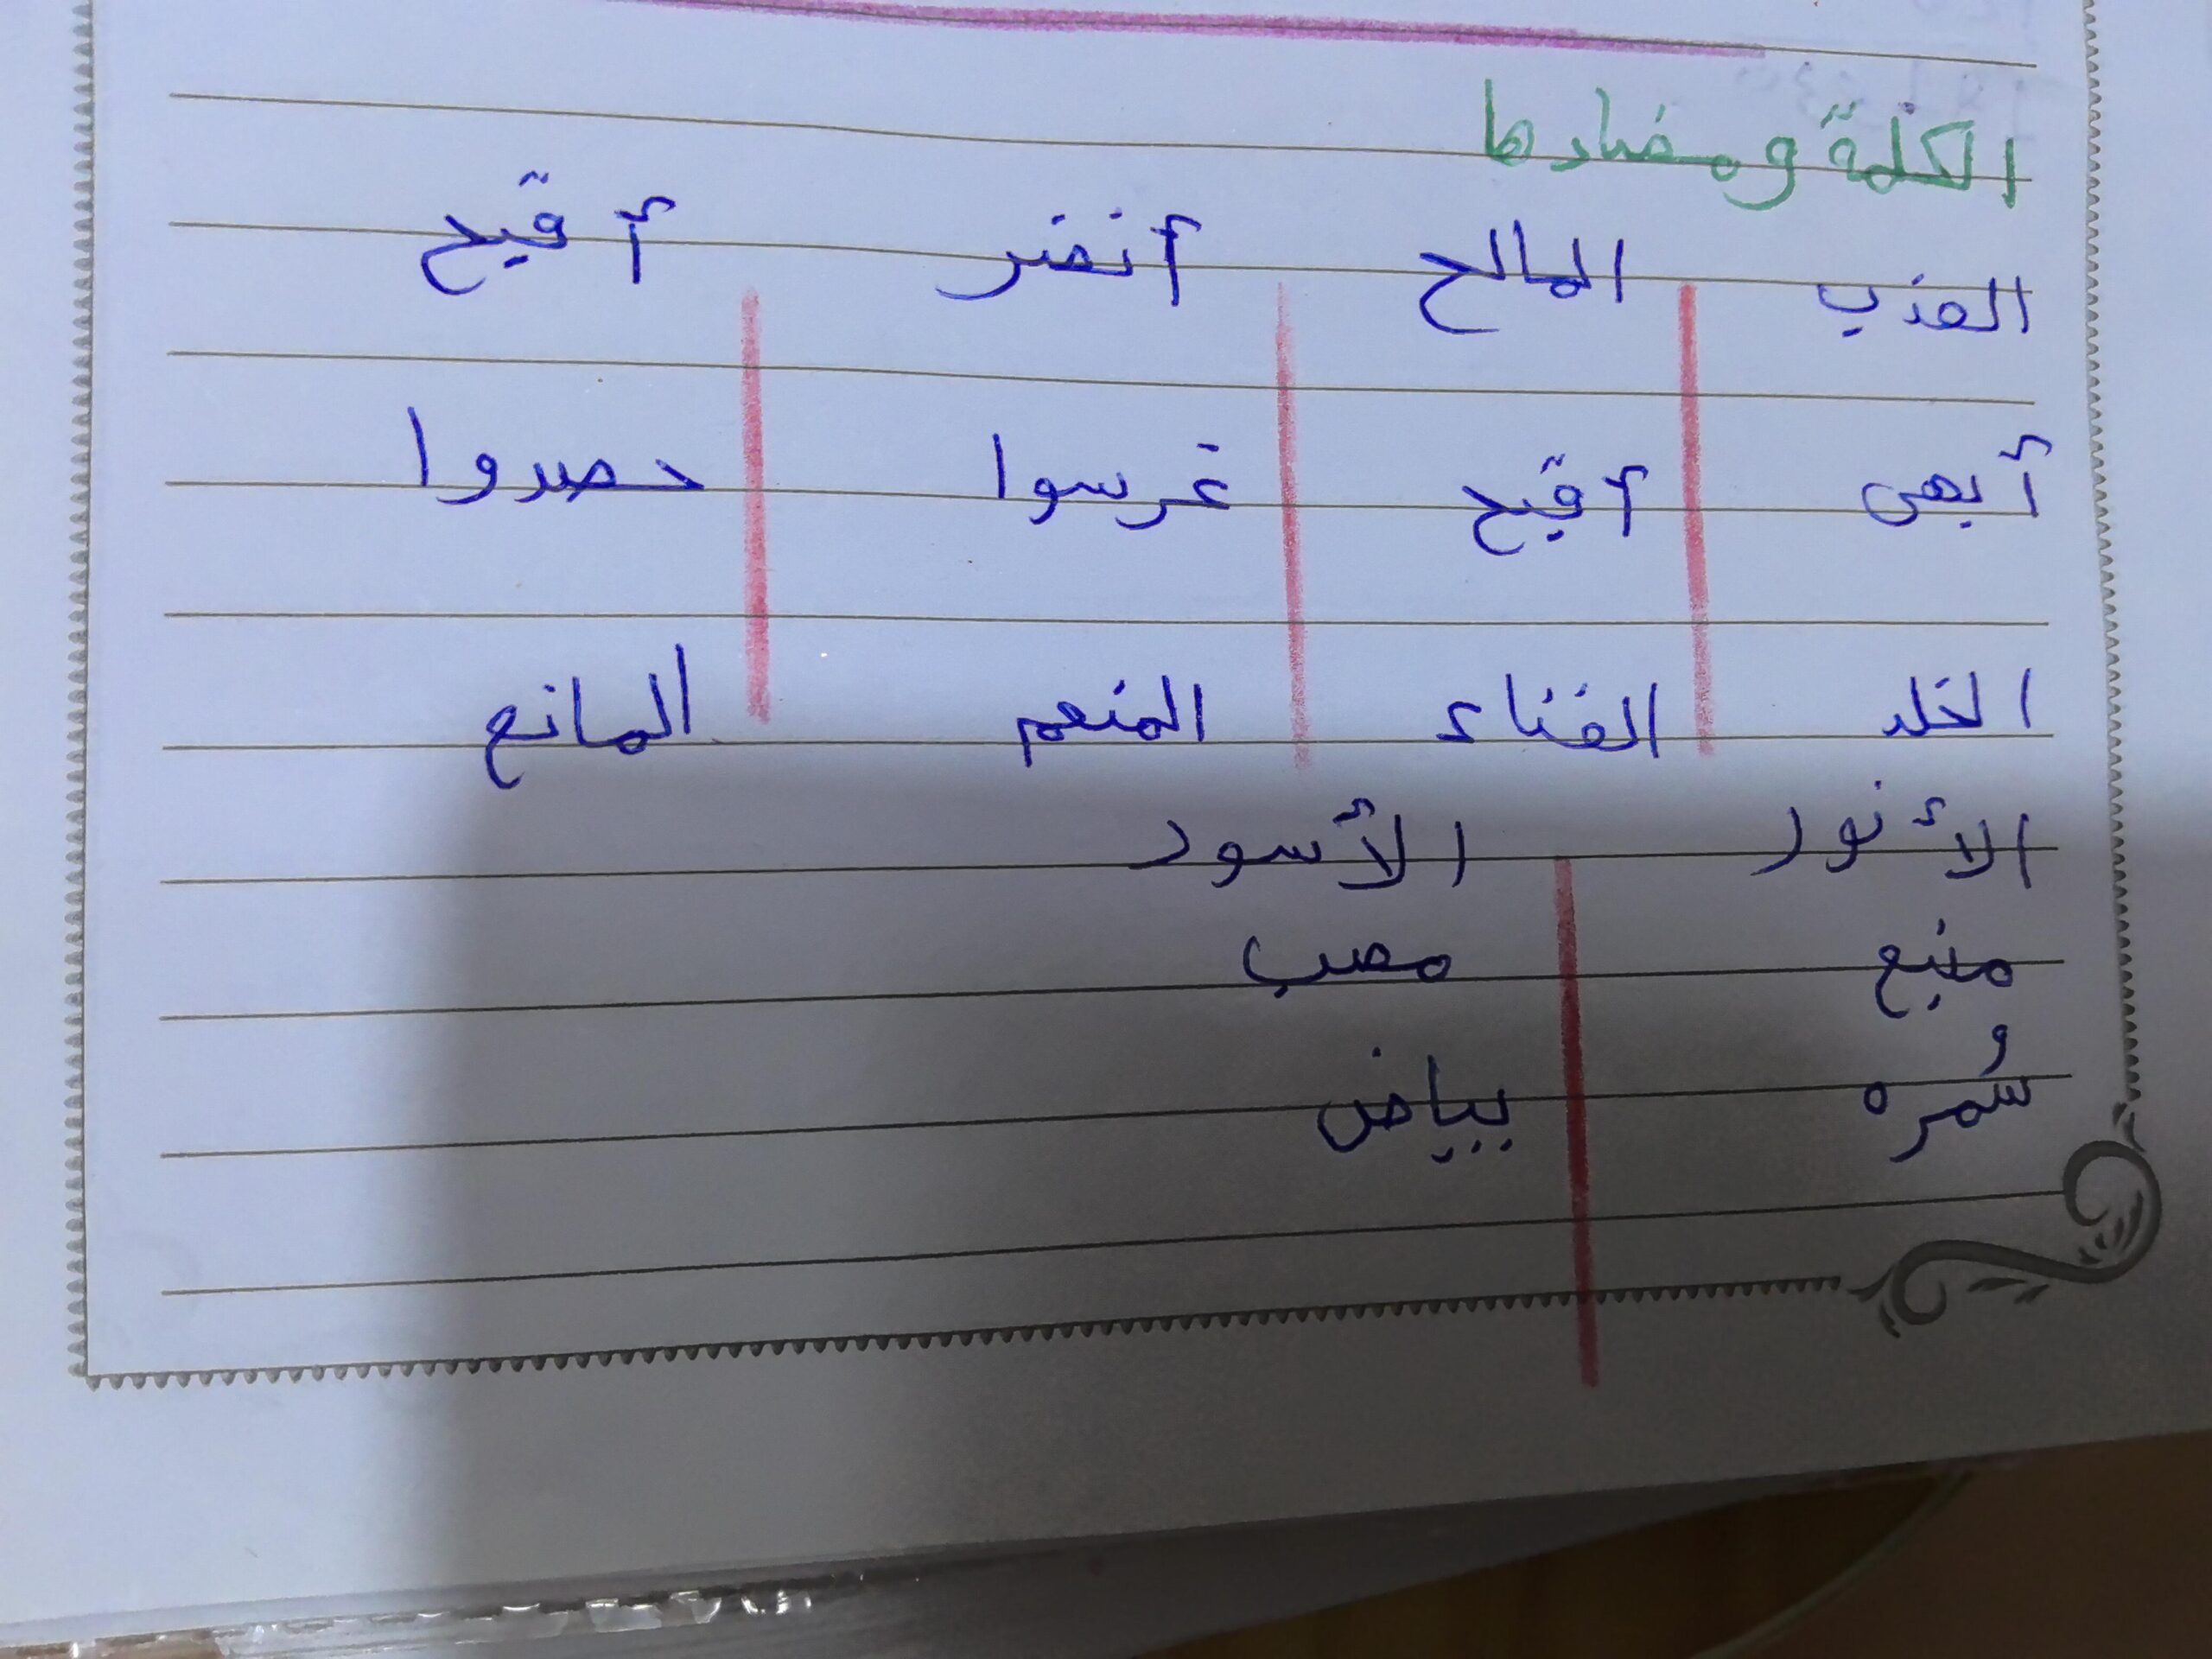 الكلمة ومضادها
العذب المالح أنضر أقبح
أبهى أقبح غرسوا حصدوا
الخلد الفناء المنعم المانع
الأنور الأسود
منبع مصب
سُمره بياض